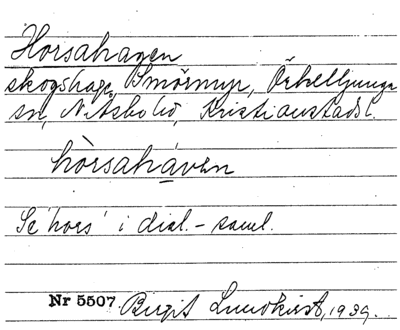 Horsahagen
skogshage, Smörmyr, Örkelljunga
sn, Kristianstads l.
hòrsahåven
Se 'hors' i dial.-saml.
Nr 5507 Birgit Lundkvist, 1939.